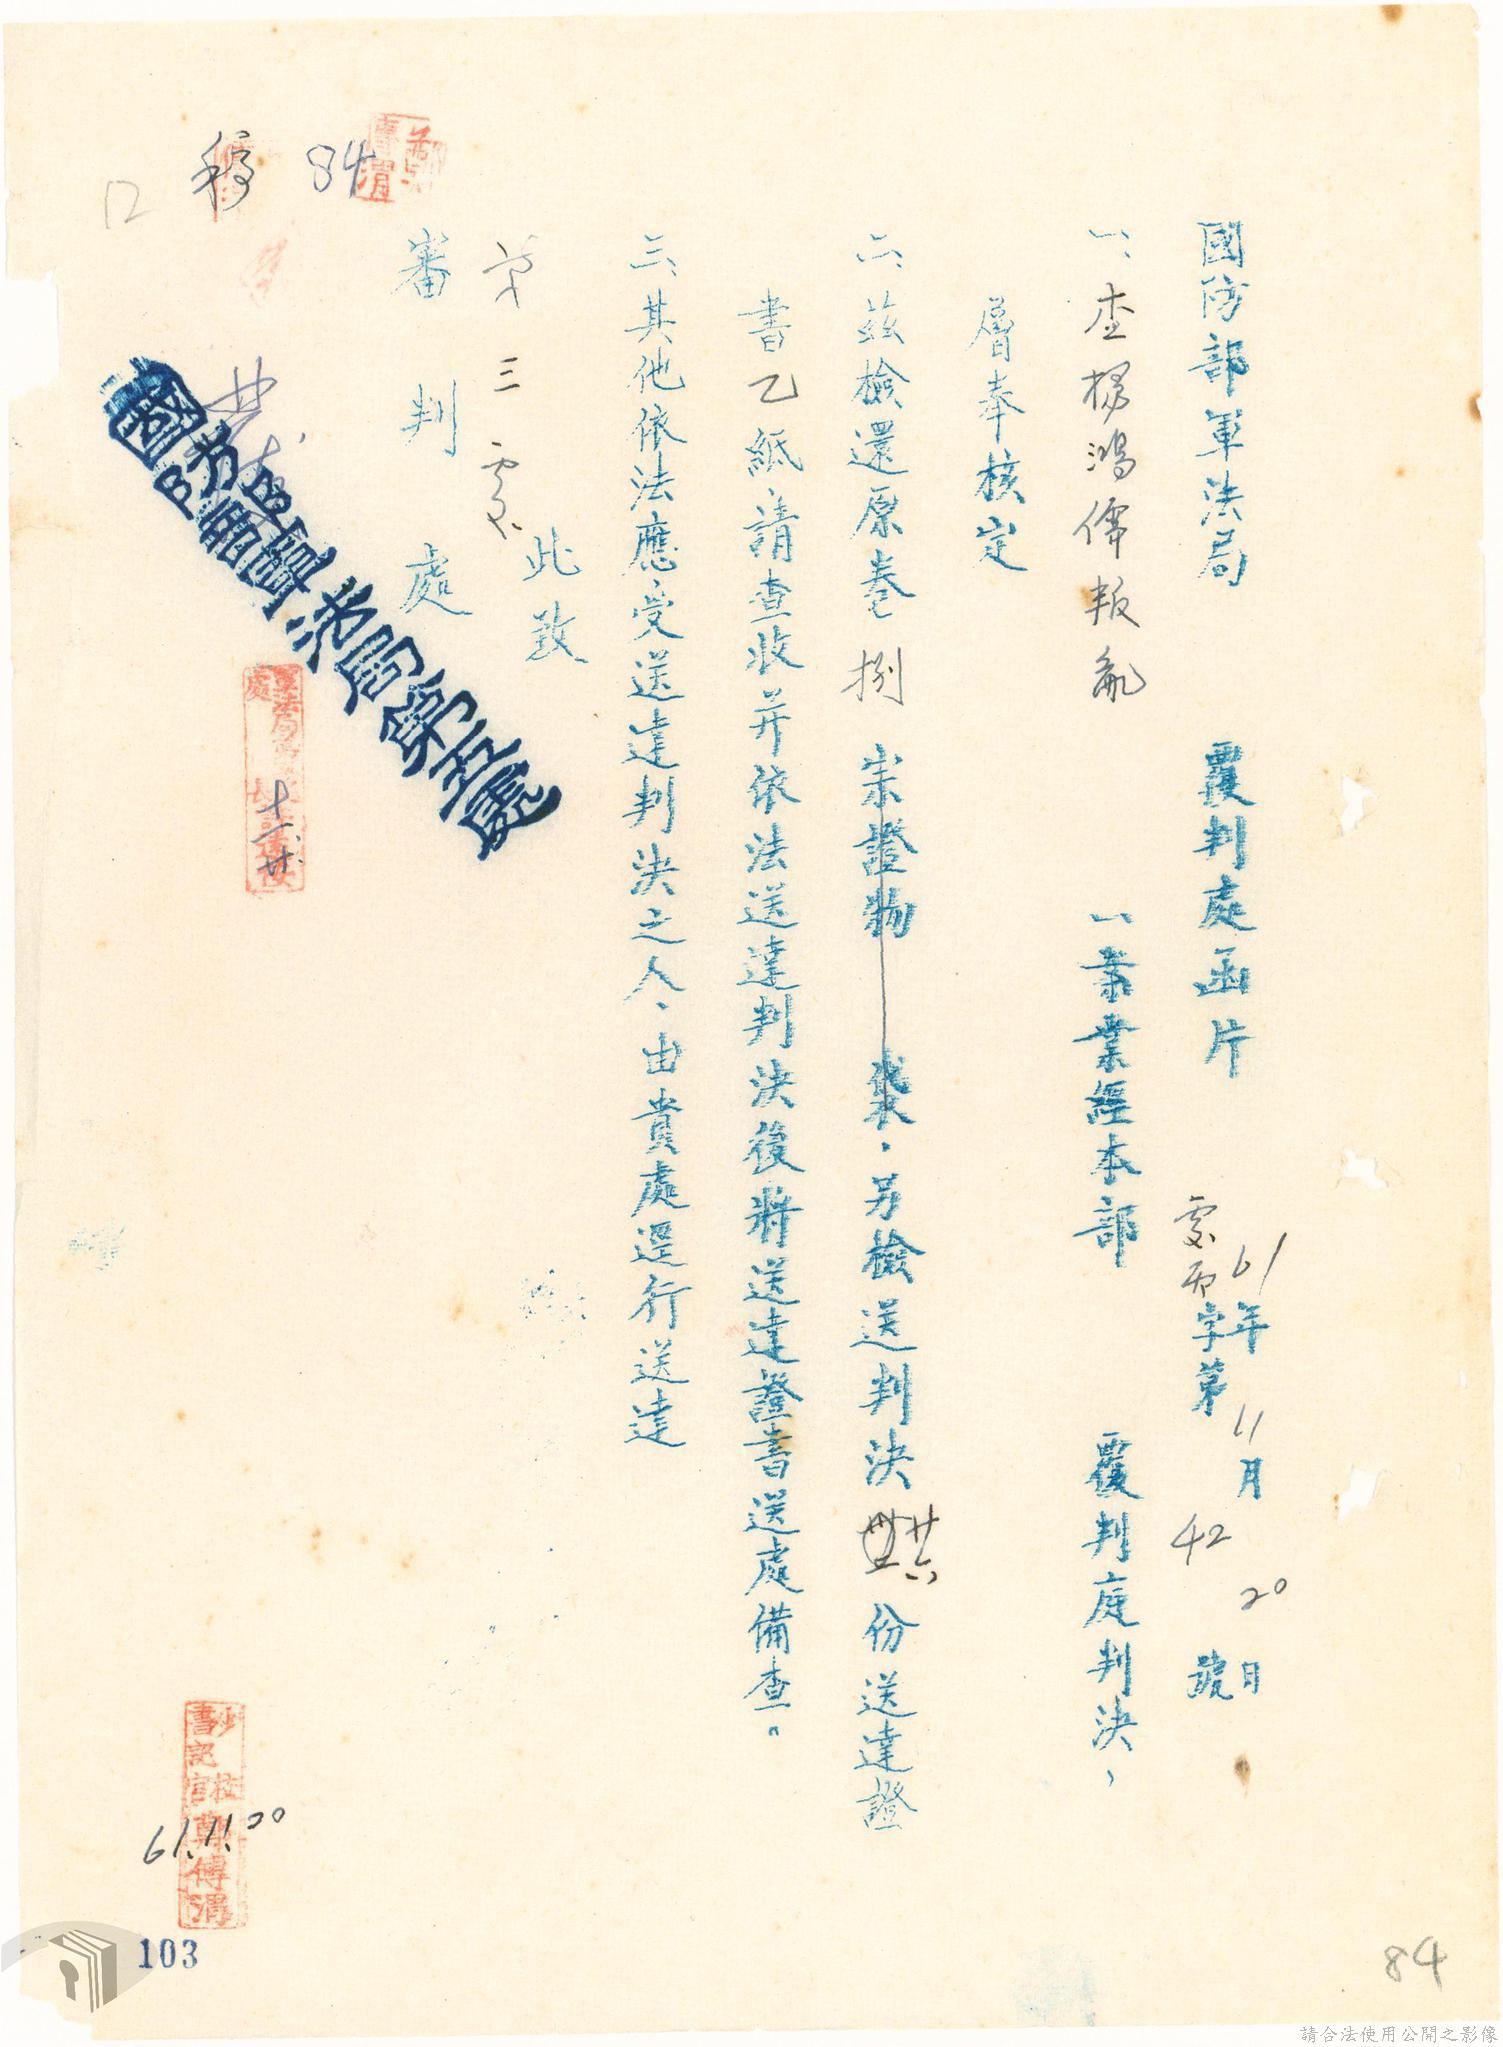 國防部軍法局　覆判處函片
61年11月20日
字第42號
一、查楊鴻儒叛亂一案業經本部　覆判庭判決、
層奉核定
二、茲檢還原卷捌宗證物　袋、另檢送判決廿六份送達證
書乙紙、請查收并依法送達判決後將送達證書送處備查。
三、其他依法應受送達判決之人、由貴處逕行送達
此致
第三處
審判處
84
稿
國防部軍法局第五處
少校書記官鄭傳渭
61.11.20
103
84
請合法使用公開之影像